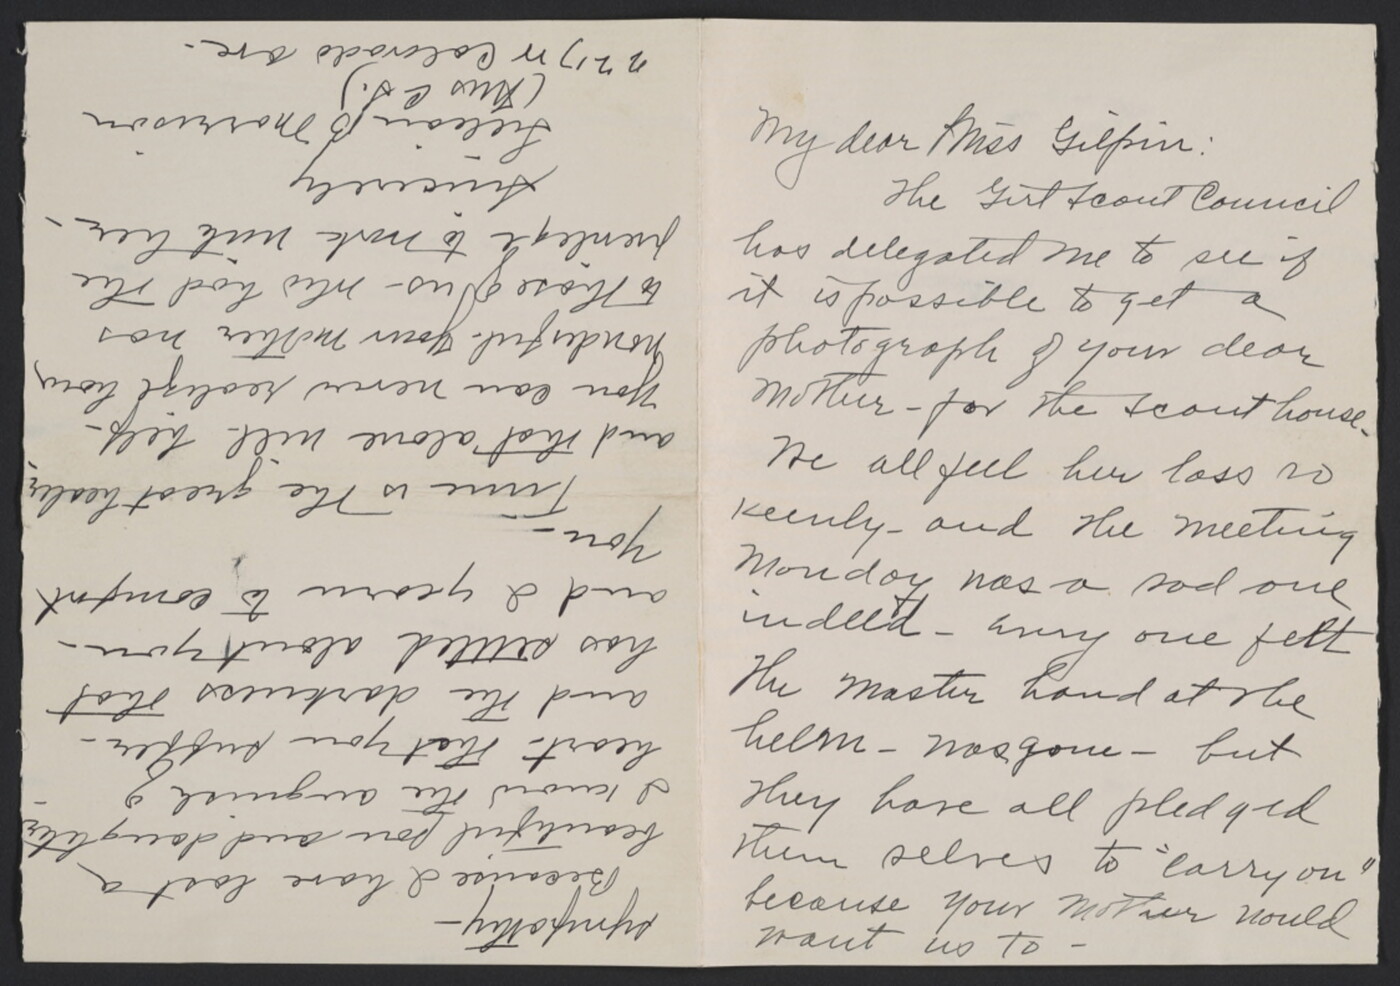 My dear Miss Gilpin:
The Girl Scout Council
has delegated me to see if
it is possible to get a
photograph of your dear
Mother - for the Scout house -
We all feel her loss so
keenly - and the meeting
Monday was a sad one
indeed - every one felt
the master hand at the
helm - was gone - but
they have all pledged
them selves to "carry on"
because your Mother would
want us to -
sympathy -
Because I have lost a
beautiful son and daughter -
I know the anguish of
heart - that you suffer -
and the darkness that
has settled about you -
and I yearn to comfort
you -
Time is the great healer,
and that alone will help -
You can never realize how
wonderful your mother was
to those of us - who had the
privilege to work with her -
Sincerely
Lillian B Morrison
(Mrs C S.)
2217 W Colorado ave -